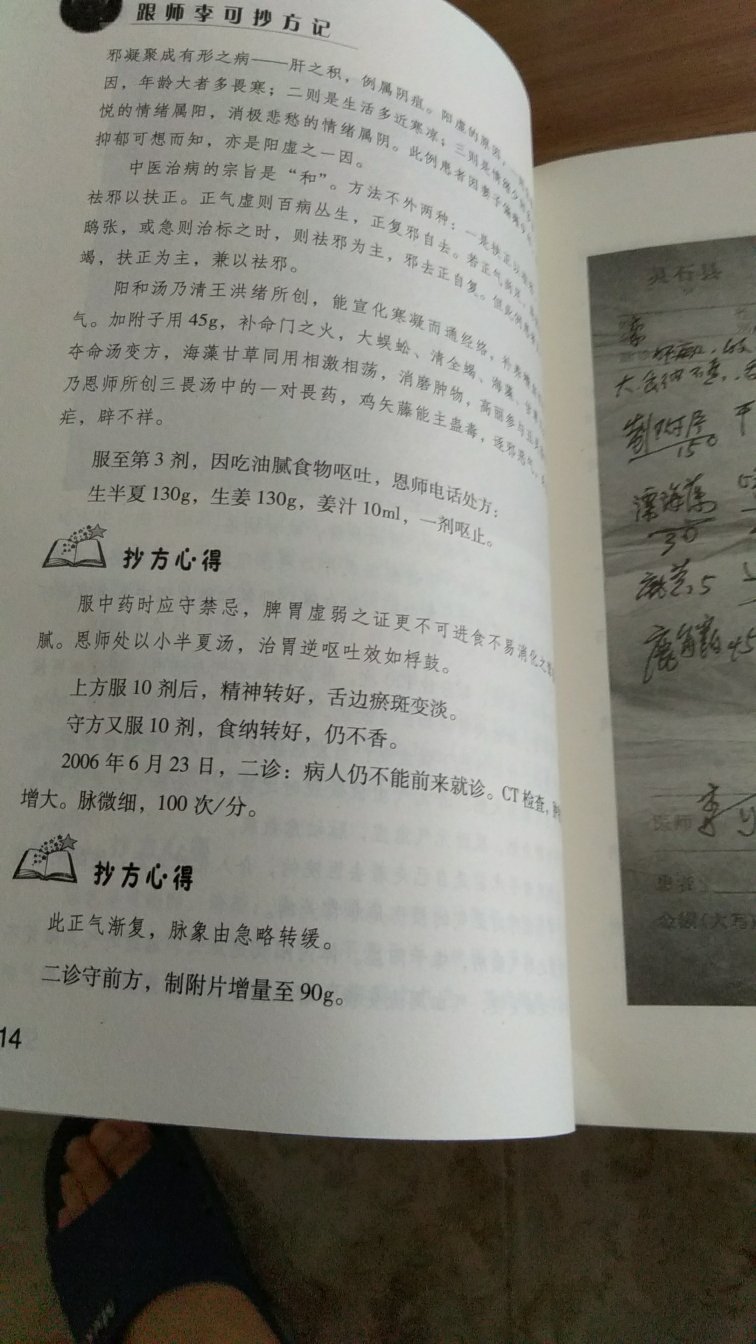 跟师李可抄方记
邪凝聚成有形之病——肝之积，例属阴疽。阳虚的原因，一
因，年龄大者多畏寒；二则是生活多近寒凉；三则是情绪少
悦的情绪属阳，消极悲愁的情绪属阴。此例患者因妻子
抑郁可想而知，亦是阳虚之一因。
中医治病的宗旨是“和”。方法不外两种：一是扶正以
祛邪以扶正。正气虚则百病丛生，正复邪自去。若正气
鸱张，或急则治标之时，则祛邪为主，邪去正自复。但此例患者
竭，扶正为主，兼以祛邪。
阳和汤乃清王洪绪所创，能宣化寒凝而通经络，补养
气。加附子用45g，补命门之火，大蜈蚣、清全蝎、海藻、甘草
夺命汤变方，海藻甘草同用相激相荡，消磨肿物，高丽参与五灵
乃恩师所创三畏汤中的一对畏药，鸡矢藤能主蛊毒，逐邪恶气，
疟，辟不祥。
服至第3剂，因吃油腻食物呕吐，恩师电话处方：
生半夏130g，生姜130g，姜汁10ml，一剂呕止。
抄方心得
服中药时应守禁忌，脾胃虚弱之证更不可进食不易消化之
腻。恩师处以小半夏汤，治胃逆呕吐效如桴鼓。
上方服10剂后，精神转好，舌边瘀斑变淡。
守方又服10剂，食纳转好，仍不香。
2006年6月23日，二诊：病人仍不能前来就诊。CT检查，肿
增大。脉微细，100次/分。
抄方心得
此正气渐复，脉象由急略转缓。
二诊守前方，制附片增量至90g。
14
灵石县
李
制附片
150
漂海藻
30
麻黄5
鹿角霜45
医师
患者
金额(大写)